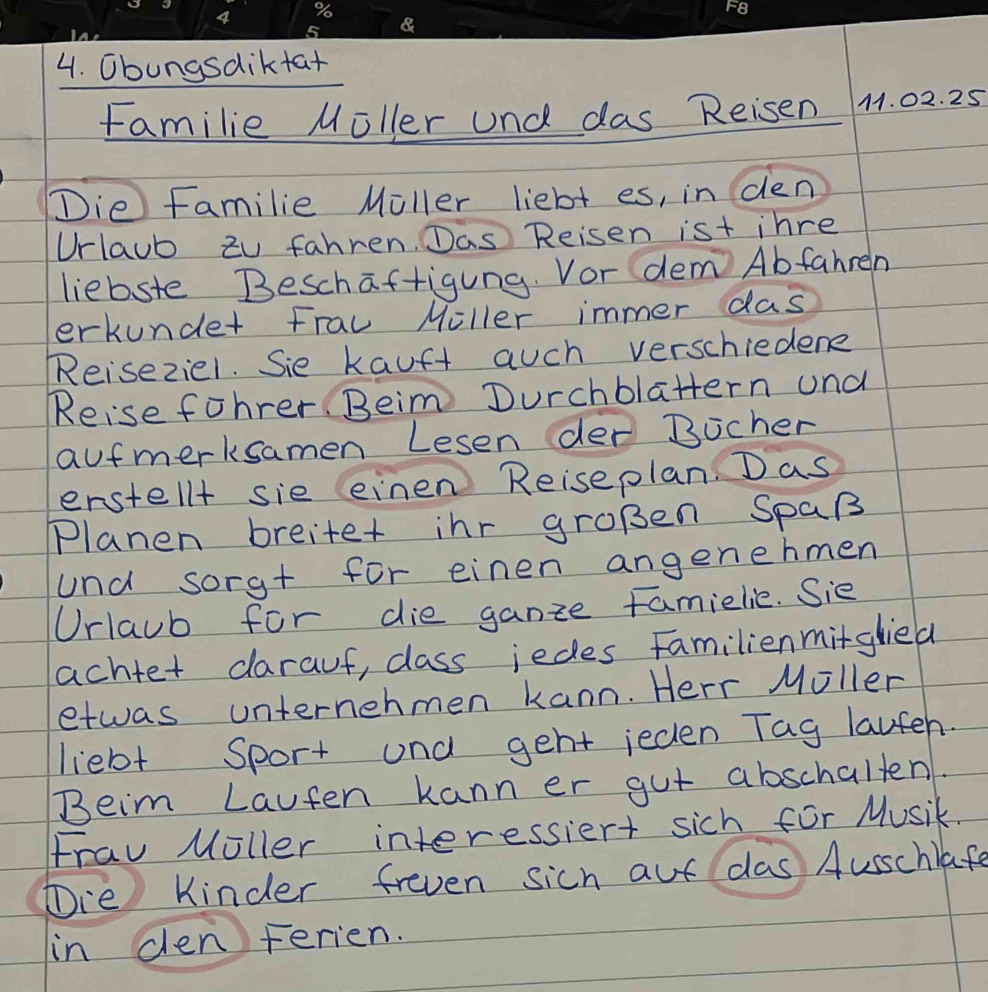 3 3 4 % 5 & F8
4. Übungsdiktat
Familie Müller und das Reisen 11.02.25
Die Familie Müller liebt es, in den
Urlaub zu fahren. Das Reisen ist ihre
liebste Beschäftigung. Vor dem Abfahren
erkundet Frau Müller immer das
Reiseziel. Sie kauft auch verschiedene
Reiseführer. Beim Durchblättern und
aufmerksamen Lesen der Bücher
erstellt sie einen Reiseplan. Das
Planen breitet ihr großen Spaß
und sorgt für einen angenehmen
Urlaub für die ganze Famielie. Sie
achtet darauf, dass jedes Familienmitglied
etwas unternehmen kann. Herr Müller
liebt Sport und geht jeden Tag laufen.
Beim Laufen kann er gut abschalten.
Frau Müller interessiert sich für Musik.
Die Kinder freuen sich auf das Ausschlafe
in den Ferien.